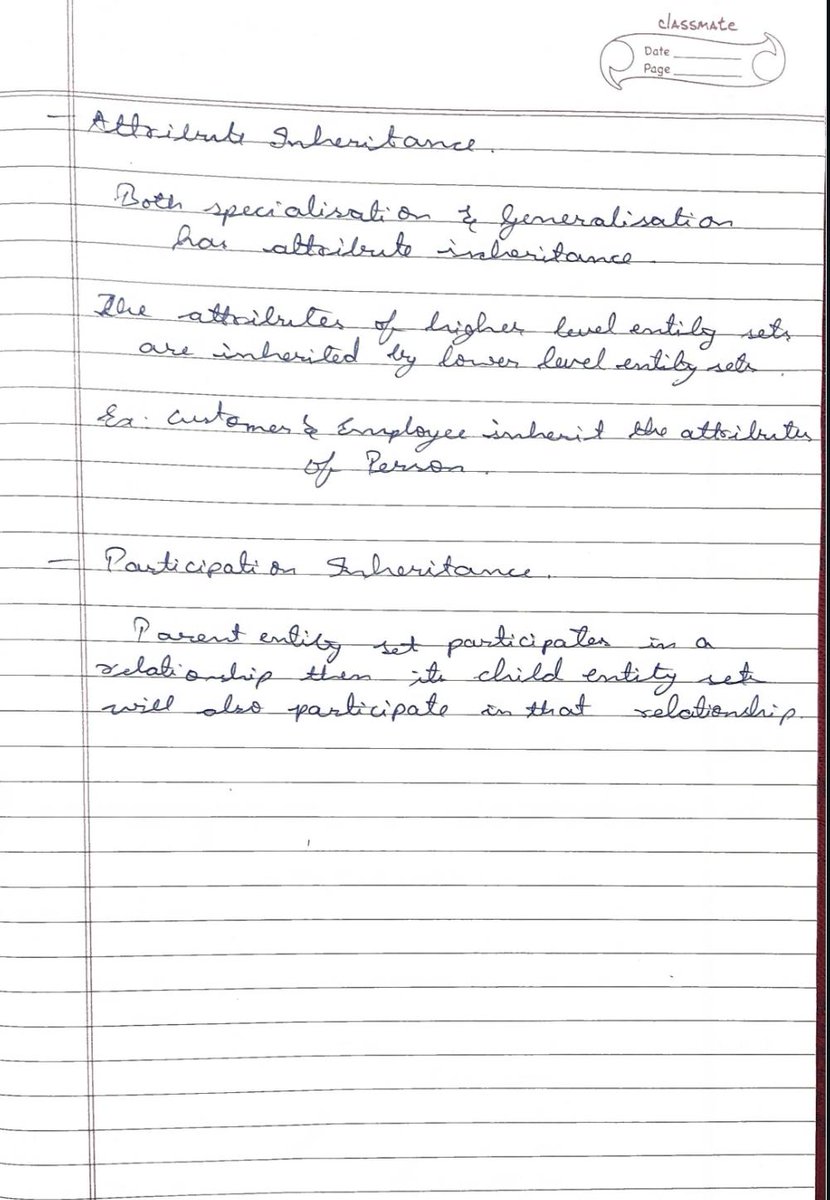 classmate
Date
Page
- Attribute Inheritance.
Both specialisation & Generalisation
has attribute inheritance.
The attributes of higher level entity sets
are inherited by lower level entity sets.
Ex: Customer & Employee inherit the attributes
of Person.
- Participation Inheritance.
Parent entity set participates in a
relationship then its child entity sets
will also participate in that relationship.